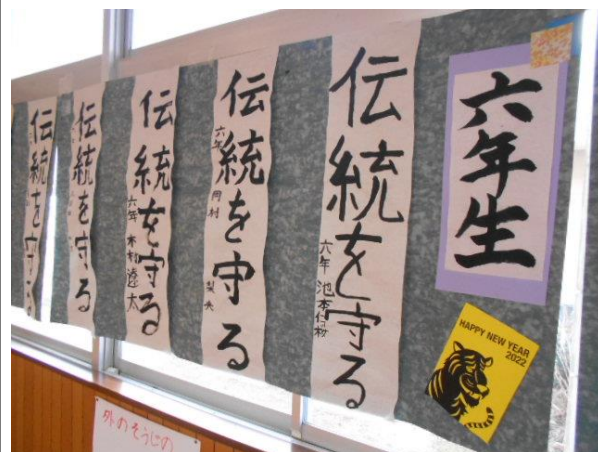 六年生
HAPPY NEW YEAR
2022
伝統を守る
六年 池本
伝統を守る
六年 岡村 梨央
伝統を守る
六年 木村 遼太
伝統を守る
伝統を守る
外のそうじの